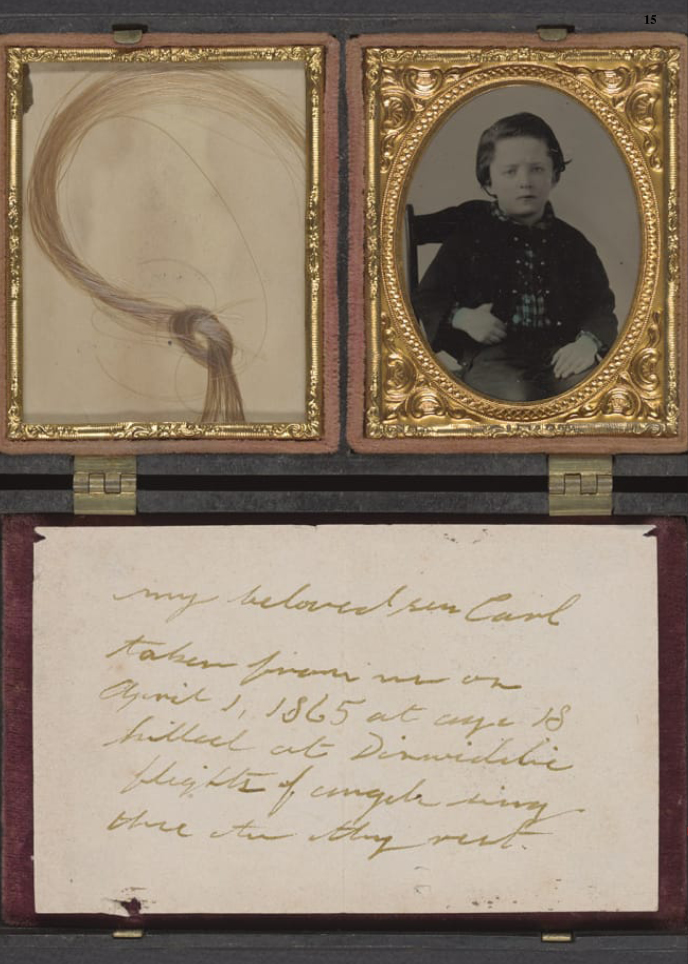 15
my beloved son Carl
taken from me on
April 1, 1865 at age 18
killed at Dinwiddie
flights of angels sing
thee to thy rest.